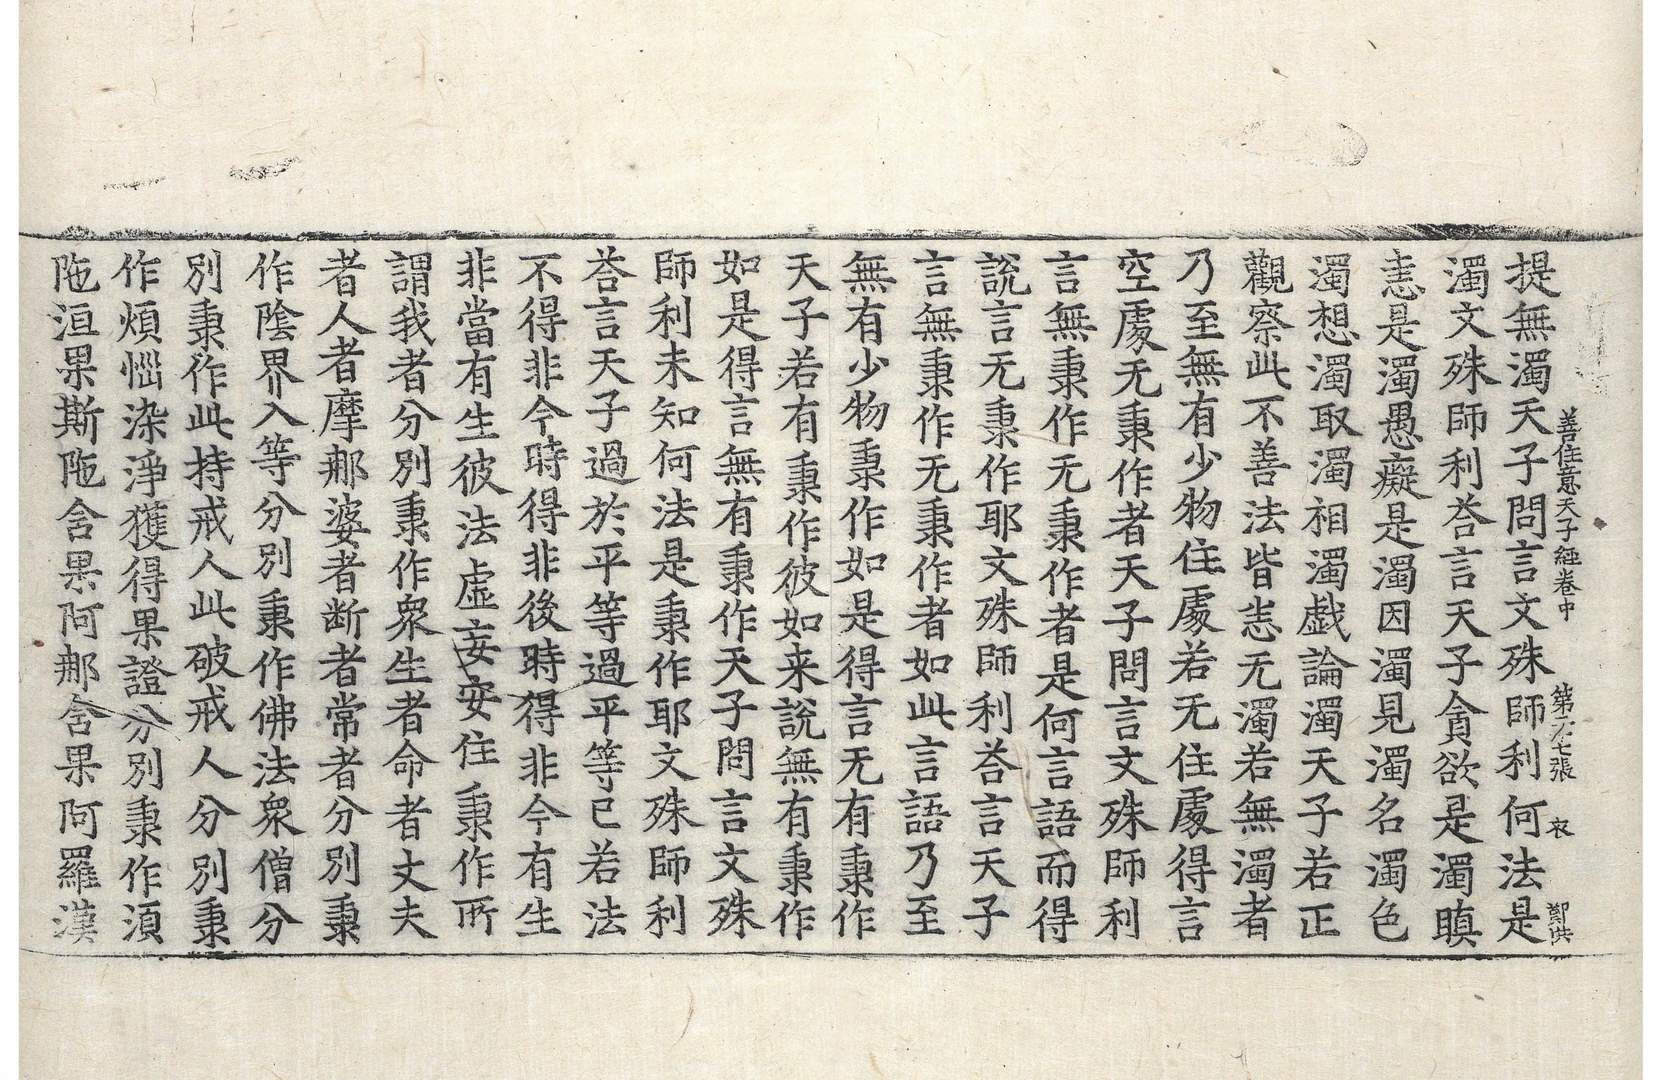 善住意天子經卷中 第 七張 衣 鄭洪
提無濁天子問言文殊師利何法是
濁文殊師利荅言天子貪欲是濁瞋
恚是濁愚癡是濁因濁見濁名濁色
濁想濁取濁相濁戯論濁天子若正
觀察此不善法皆恚无濁若無濁者
乃至無有少物住處若无住處得言
空處无秉作者天子問言文殊師利
言無秉作无秉作者是何言語而得
說言无秉作耶文殊師利荅言天子
言無秉作无秉作者如此言語乃至
無有少物秉作如是得言无有秉作
天子若有秉作彼如来說無有秉作
如是得言無有秉作天子問言文殊
師利未知何法是秉作耶文殊師利
荅言天子過於平等過平等已若法
不得非今時得非後時得非今有生
非當有生彼法虛妄安住秉作所
謂我者分別秉作衆生者命者丈夫
者人者摩那婆者断者常者分別秉
作陰界入等分別秉作佛法衆僧分
別秉作此持戒人此破戒人分別秉
作煩惱染淨獲得果證分別秉作湏
陁洹果斯陁含果阿那含果阿羅漢